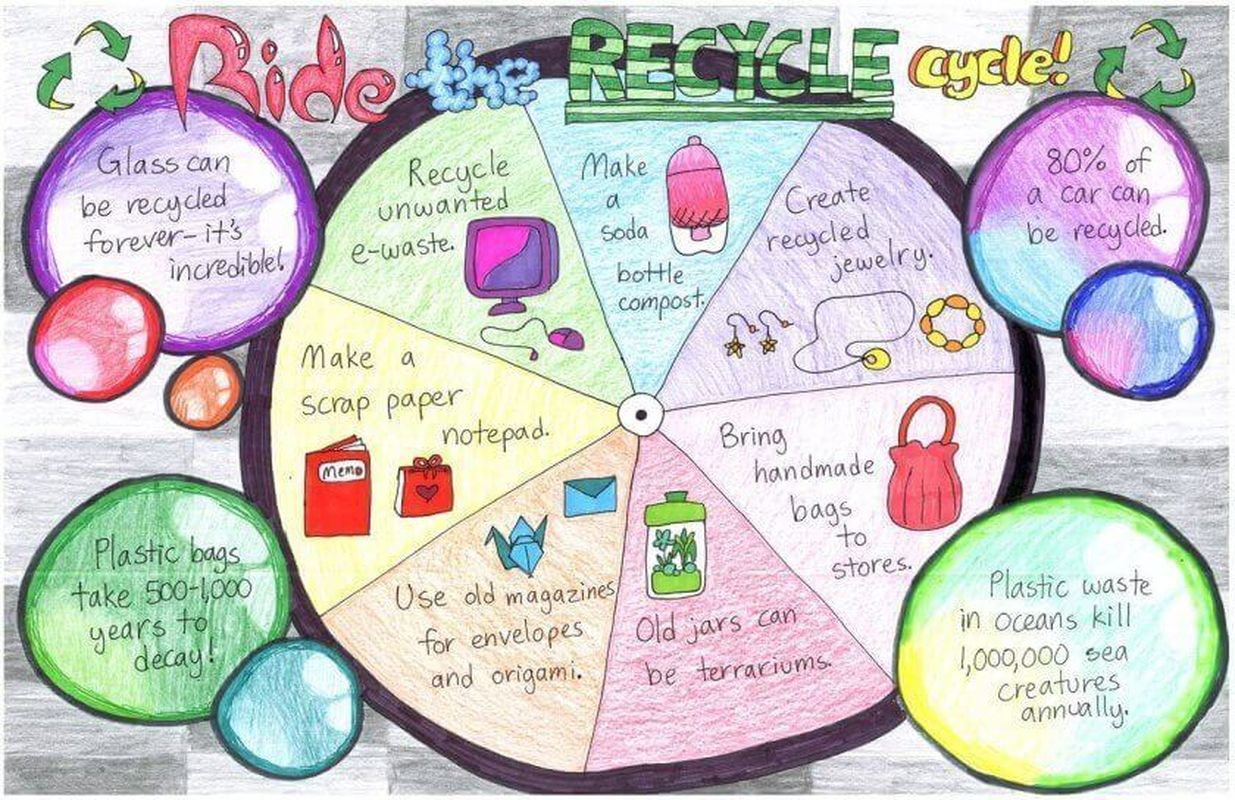 Ride the RECYCLE cycle!
Glass can
be recycled
forever–it's
incredible!
Recycle
unwanted
e-waste.
Make
a
soda
bottle
compost.
Create
recycled
jewelry.
80% of
a car can
be recycled.
Make a
scrap paper
notepad.
Memo
Bring
handmade
bags
to
stores.
Plastic bags
take 500-1,000
years to
decay!
Use old magazines
for envelopes
and origami.
Old jars can
be terrariums.
Plastic waste
in oceans kill
1,000,000 sea
creatures
annually.